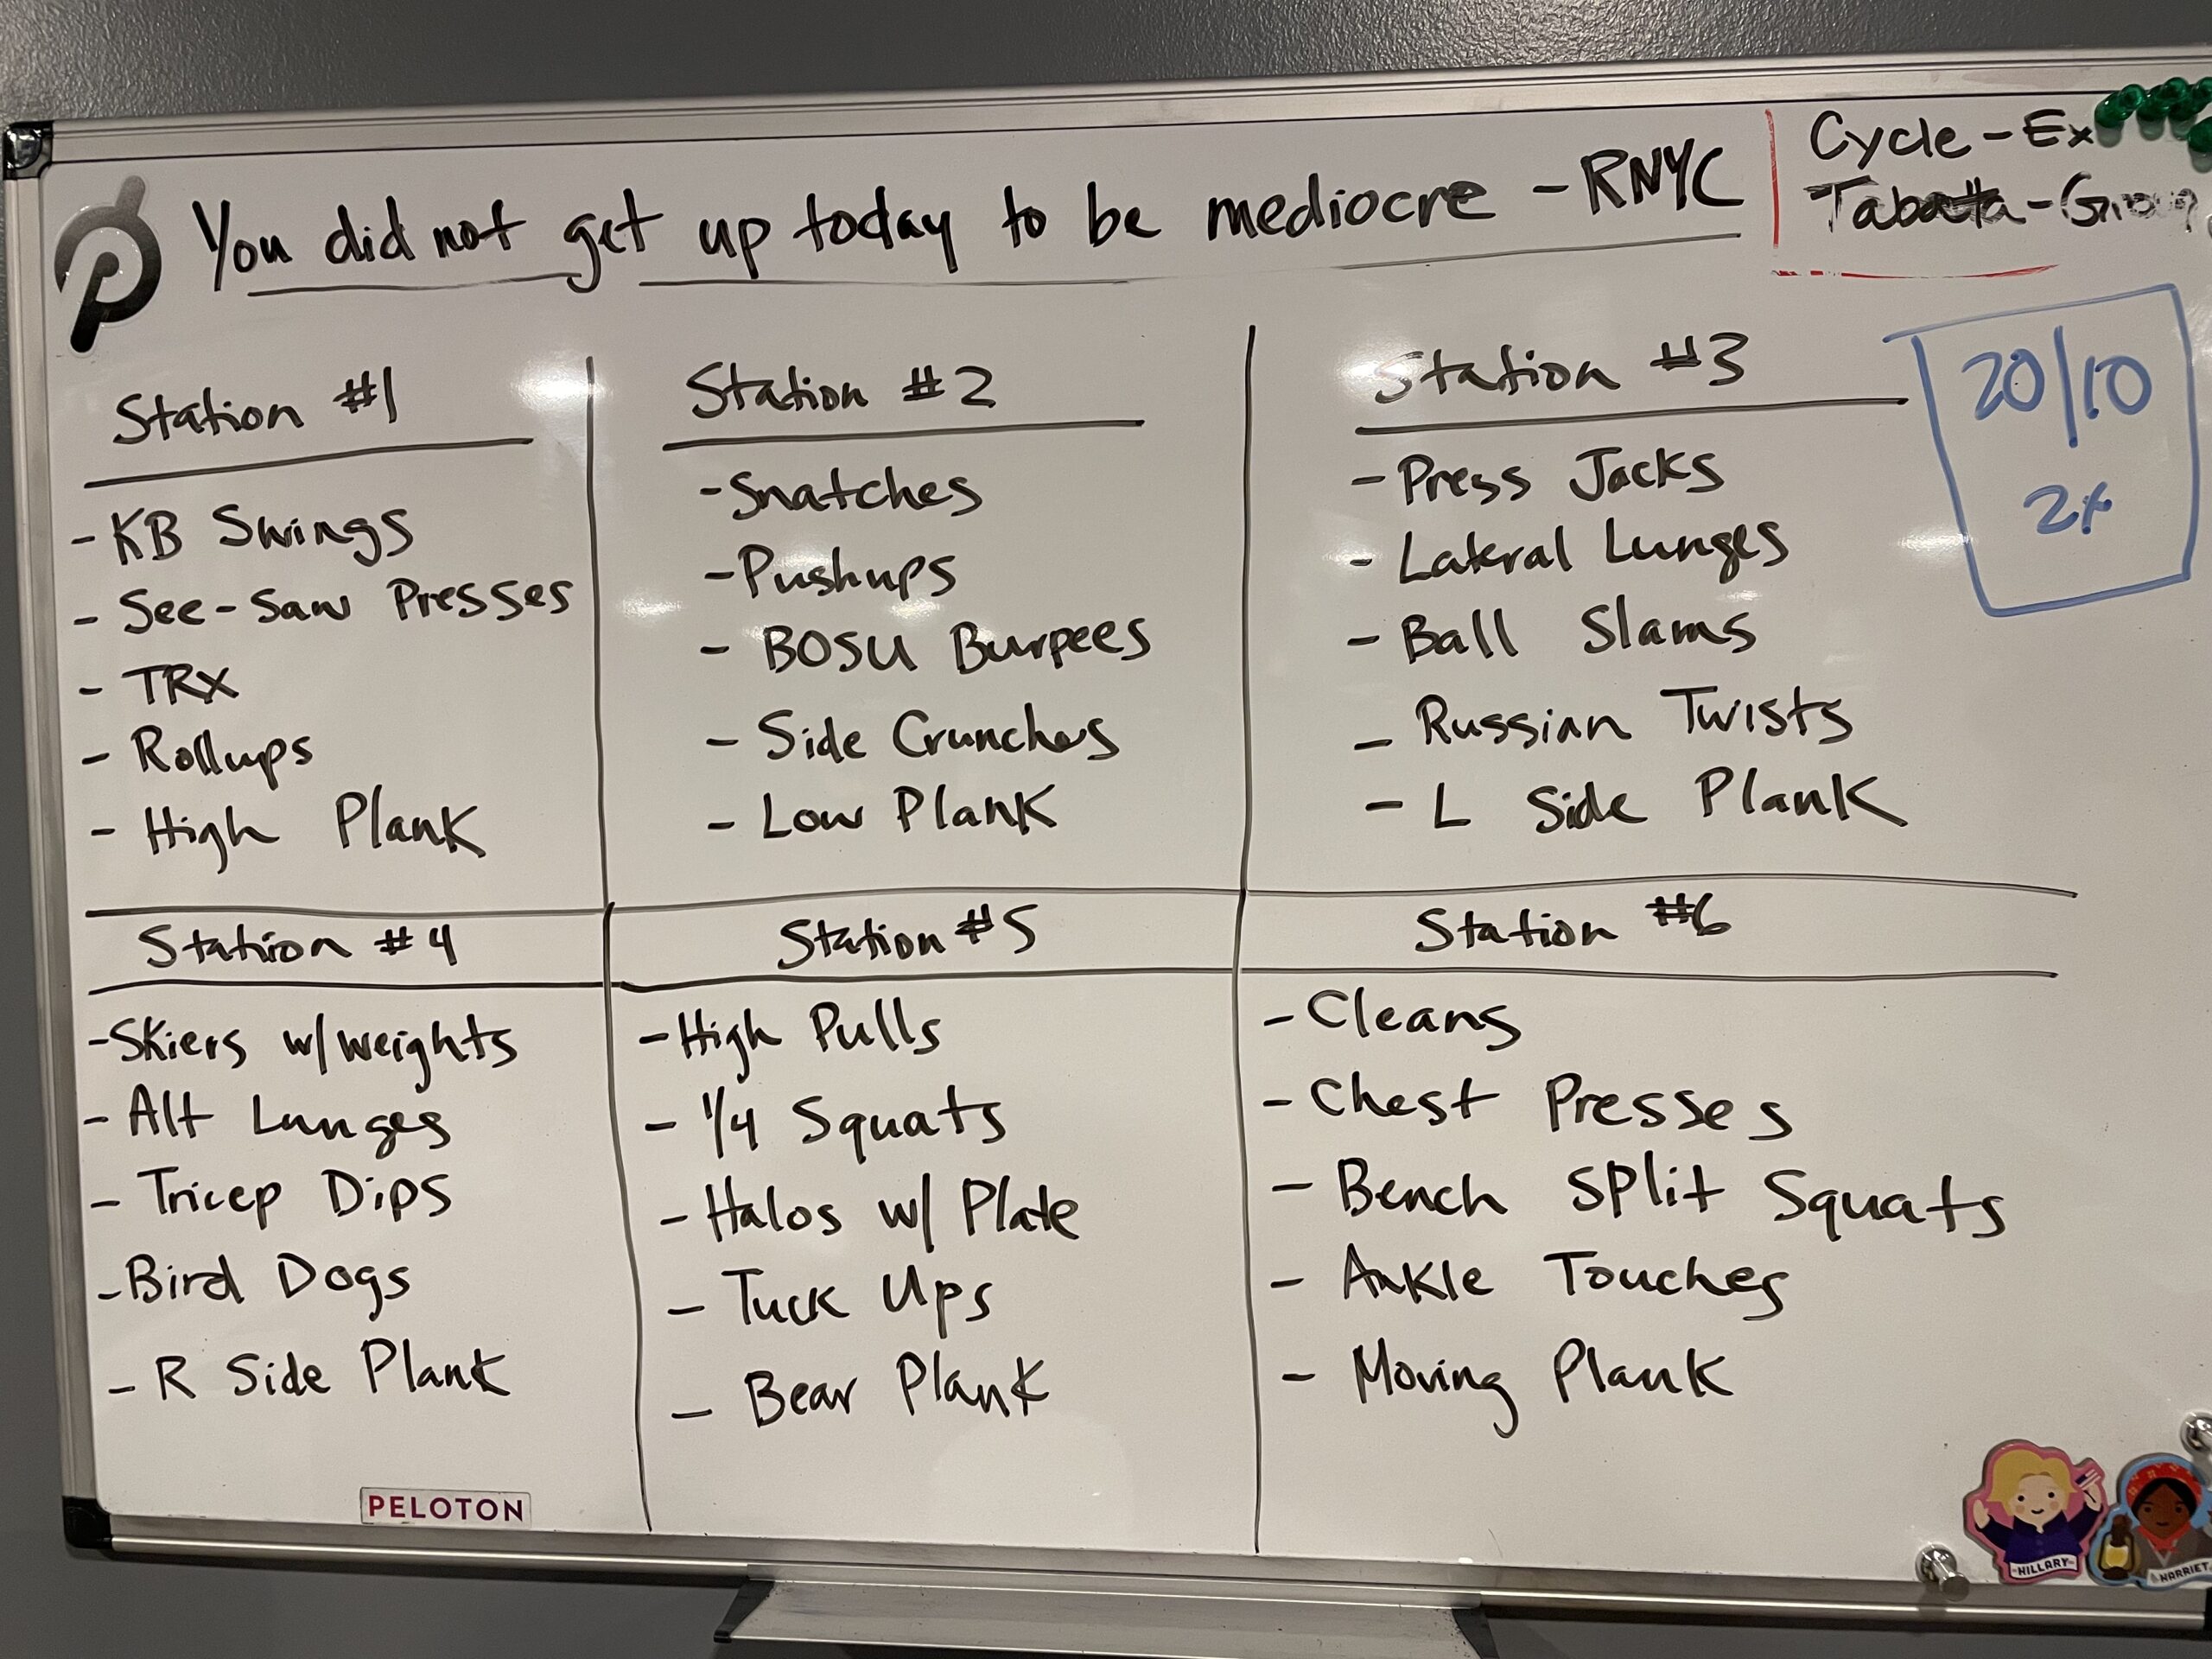 You did not get up today to be mediocre - RNYC
Cycle - Ex
Tabata - Group
20/10
2x
Station #1
- KB Swings
- See-Saw Presses
- TRX
- Rollups
- High Plank
Station #2
- Snatches
- Pushups
- BOSU Burpees
- Side Crunches
- Low Plank
Station #3
- Press Jacks
- Lateral Lunges
- Ball Slams
- Russian Twists
- L Side Plank
Station #4
- Skiers w/weights
- Alt Lunges
- Tricep Dips
- Bird Dogs
- R Side Plank
Station #5
- High Pulls
- 1/4 Squats
- Halos w/ Plate
- Tuck Ups
- Bear Plank
Station #6
- Cleans
- Chest Presses
- Bench Split Squats
- Ankle Touches
- Moving Plank
PELOTON
HILLARY
HARRIET